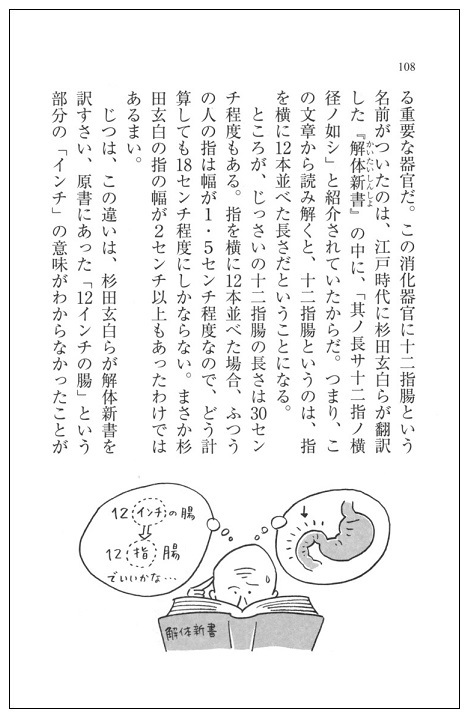 108
る重要な器官だ。この消化器官に十二指腸という
名前がついたのは、江戸時代に杉田玄白らが翻訳
した『解体新書』の中に、「其ノ長サ十二指ノ横
かいたいしんしょ
径ノ如シ」と紹介されていたからだ。つまり、こ
の文章から読み解くと、十二指腸というのは、指
を横に12本並べた長さだということになる。
ところが、じっさいの十二指腸の長さは30セン
チ程度もある。指を横に12本並べた場合、ふつう
の人の指は幅が1・5センチ程度なので、どう計
算しても18センチ程度にしかならない。まさか杉
田玄白の指の幅が2センチ以上もあったわけでは
あるまい。
じつは、この違いは、杉田玄白らが解体新書を
訳すさい、原書にあった「12インチの腸」という
部分の「インチ」の意味がわからなかったことが
12インチの腸
12指腸
でいいかな…
解体新書